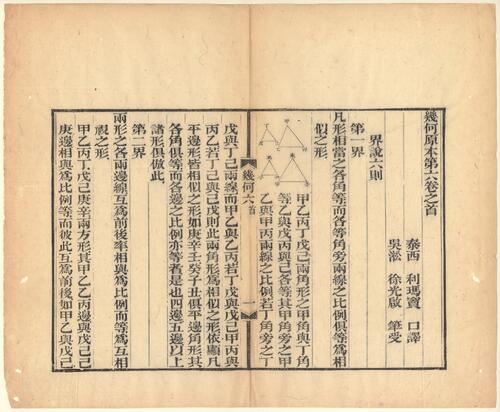 幾何原本第六卷之首
泰西 利瑪竇 口譯
吳淞 徐光啟 筆受
界說六則
第一界
凡形相當之各角等而各等角旁兩線之比例俱等為相
似之形
甲乙丙丁戊己兩角形之甲角與丁角
等乙與戊丙與己各等其甲角旁之甲
乙與甲丙兩線之比例若丁角旁之丁
幾何六首 一
戊與丁己兩線而甲乙與乙丙若丁戊與戊己甲丙與
丙乙若丁己與己戊則此兩角形為相似之形依顯凡
平邊形皆相似之形如庚辛壬癸子丑俱平邊角形其
各角俱等而各邊之比例亦等者是也四邊五邊以上
諸形俱倣此
第二界
兩形之各兩邊線互為前後率相與為比例而等為互相
視之形
甲乙丙丁戊己庚辛兩方形其甲乙乙丙邊與戊己己
庚邊相與為比例等而彼此互為前後如甲乙與戊己